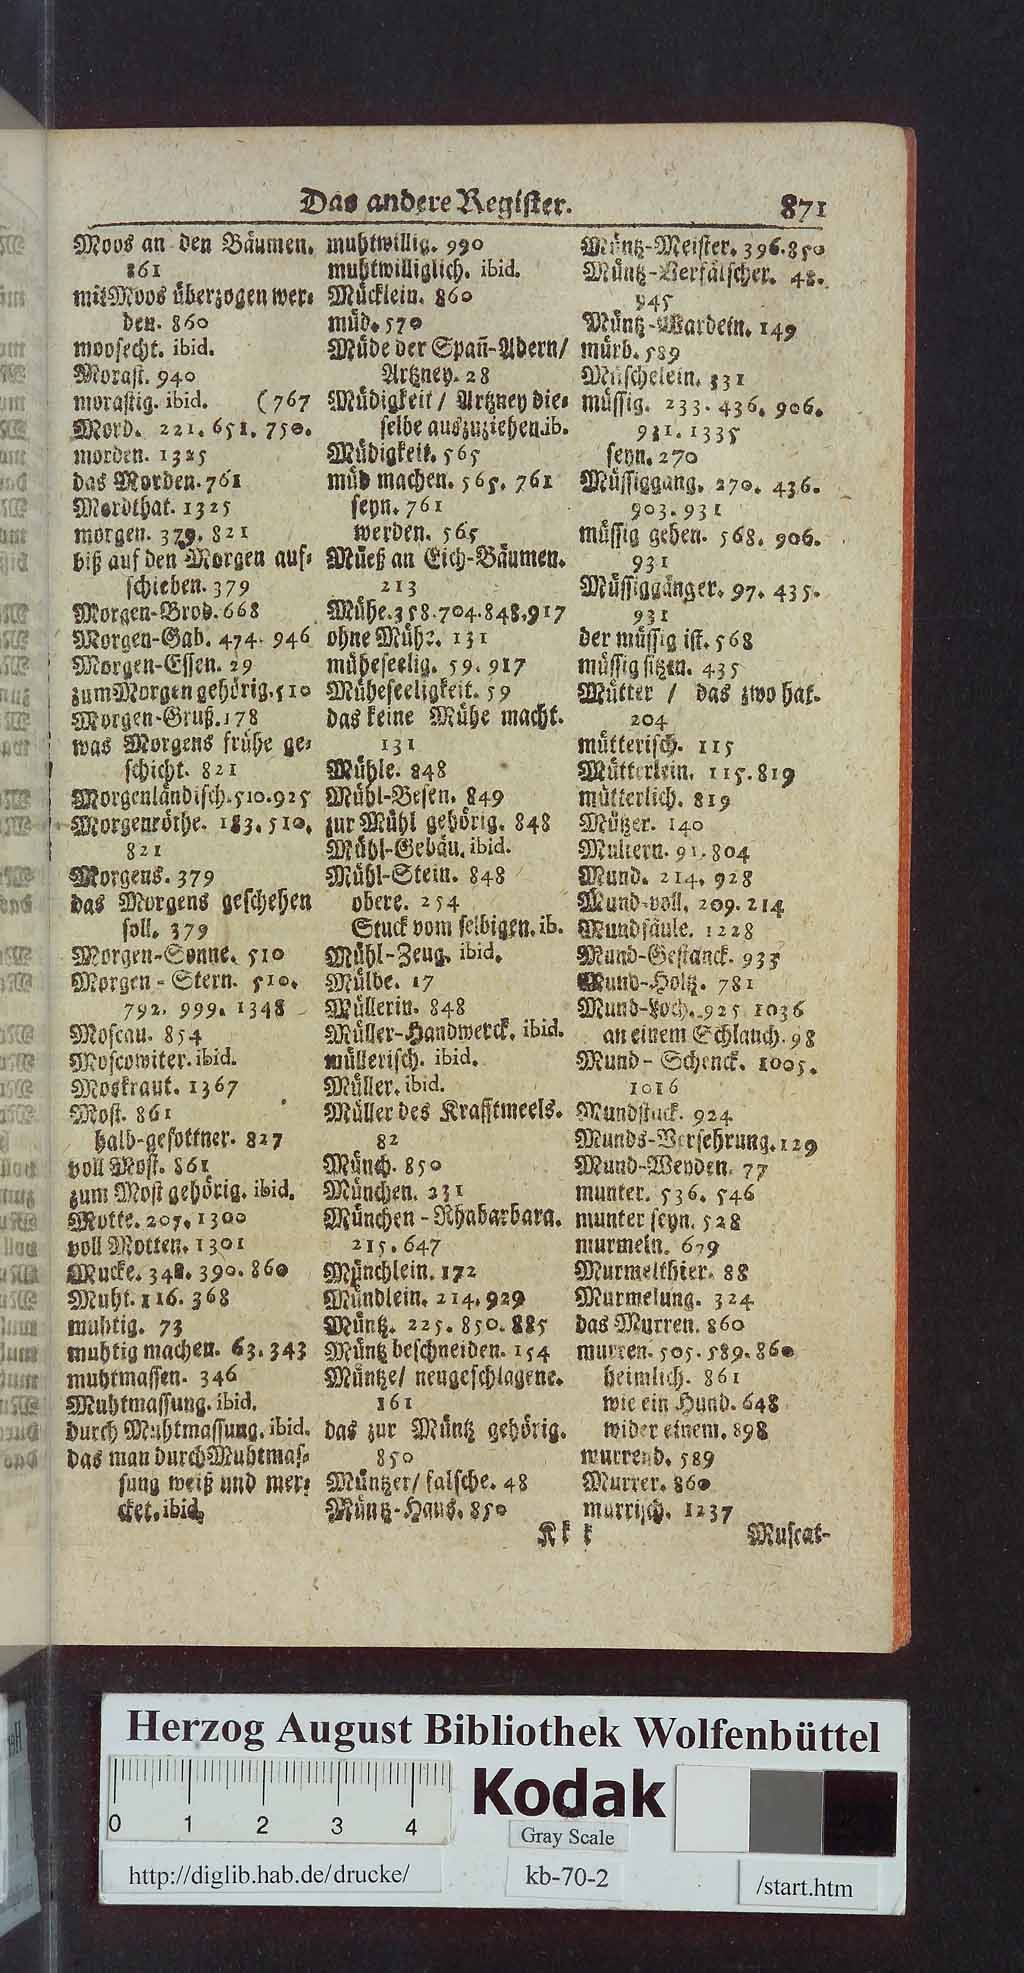 Das andere Register. 871
Moos an den Bäumen.
861
mit Moos überzogen wer-
den. 860
moosecht. ibid.
Morast. 940
morastig. ibid. (767
Mord. 221. 651. 750.
morden. 1325
das Morden. 761
Mordthat. 1325
morgen. 379. 821
biß auf den Morgen auf-
schieben. 379
Morgen-Brod. 668
Morgen-Gab. 474. 946
Morgen-Essen. 29
zum Morgen gehörig. 510
Morgen-Gruß. 178
was Morgens frühe ge-
schicht. 821
Morgenländisch. 510. 925
Morgenröthe. 183. 510.
821
Morgens. 379
das Morgens geschehen
soll. 379
Morgen-Sonne. 510
Morgen-Stern. 510.
792. 999. 1348
Moscau. 854
Moscowiter. ibid.
Moskraut. 1367
Most. 861
halb-gesottner. 827
voll Most. 861
zum Most gehörig. ibid.
Motte. 207. 1300
voll Motten. 1301
Mucke. 348. 390. 860
Muht. 116. 368
muhtig. 73
muhtig machen. 63. 343
muhtmassen. 346
Muhtmassung. ibid.
durch Muhtmassung. ibid.
das man durch Muhtmas-
sung weiß und mer-
cket. ibid.
muhtwillig. 990
muhtwilliglich. ibid.
Mücklein. 860
müd. 570
Müde der Spañ-Adern/
Artzney. 28
Müdigkeit / Artzney die-
selbe auszuziehen. ib.
Müdigkeit. 565
müd machen. 565. 761
seyn. 761
werden. 565
Müeß an Eich-Bäumen.
213
Mühe. 358. 704. 848. 917
ohne Mühe. 131
müheseelig. 59. 917
Müheseeligkeit. 59
das keine Mühe macht.
131
Mühle. 848
Mühl-Besen. 849
zur Mühl gehörig. 848
Mühl-Gebäu. ibid.
Mühl-Stein. 848
obere. 254
Stuck vom selbigen. ib.
Mühl-Zeug. ibid.
Mülde. 17
Müllerin. 848
Müller-Handwerck. ibid.
müllerisch. ibid.
Müller. ibid.
Müller des Krafftmeels.
82
Münch. 850
München. 231
München-Rhabarbara.
215. 647
Münchlein. 172
Mündlein. 214. 929
Müntz. 225. 850. 885
Müntz beschneiden. 154
Müntze/ neugeschlagene.
161
das zur Müntz gehörig.
850
Müntzer/ falsche. 48
Müntz-Haus. 850
Müntz-Meister. 396. 850
Müntz-Verfälscher. 48.
945
Müntz-Wardein. 149
mürb. 589
Müschelein. 331
müssig. 233. 436. 906.
931. 1335
seyn. 270
Müssiggang. 270. 436.
903. 931
müssig gehen. 568. 906.
931
Müssiggänger. 97. 435.
931
der müssig ist. 568
müssig sitzen. 435
Mütter / das zwo hat.
204
mütterisch. 115
Mütterlein. 115. 819
mütterlich. 819
Mützer. 140
Multern. 91. 804
Mund. 214. 928
Mund-voll. 209. 214
Mundfäule. 1228
Mund-Gestanck. 933
Mund-Holtz. 781
Mund-Loch. 925 1036
an einem Schlauch. 98
Mund-Schenck. 1005.
1016
Mundstuck. 924
Munds-Versehrung. 129
Mund-Wenden. 77
munter. 536. 546
munter seyn. 528
murmeln. 679
Murmelthier. 88
Murmelung. 324
das Murren. 860
murren. 505. 589. 860
heimlich. 861
wie ein Hund. 648
wider einem. 898
murrend. 589
Murrer. 860
murrisch. 1237
Kkk Muscat-
Herzog August Bibliothek Wolfenbüttel
0 1 2 3 4
Kodak
Gray Scale
http://diglib.hab.de/drucke/
kb-70-2
/start.htm